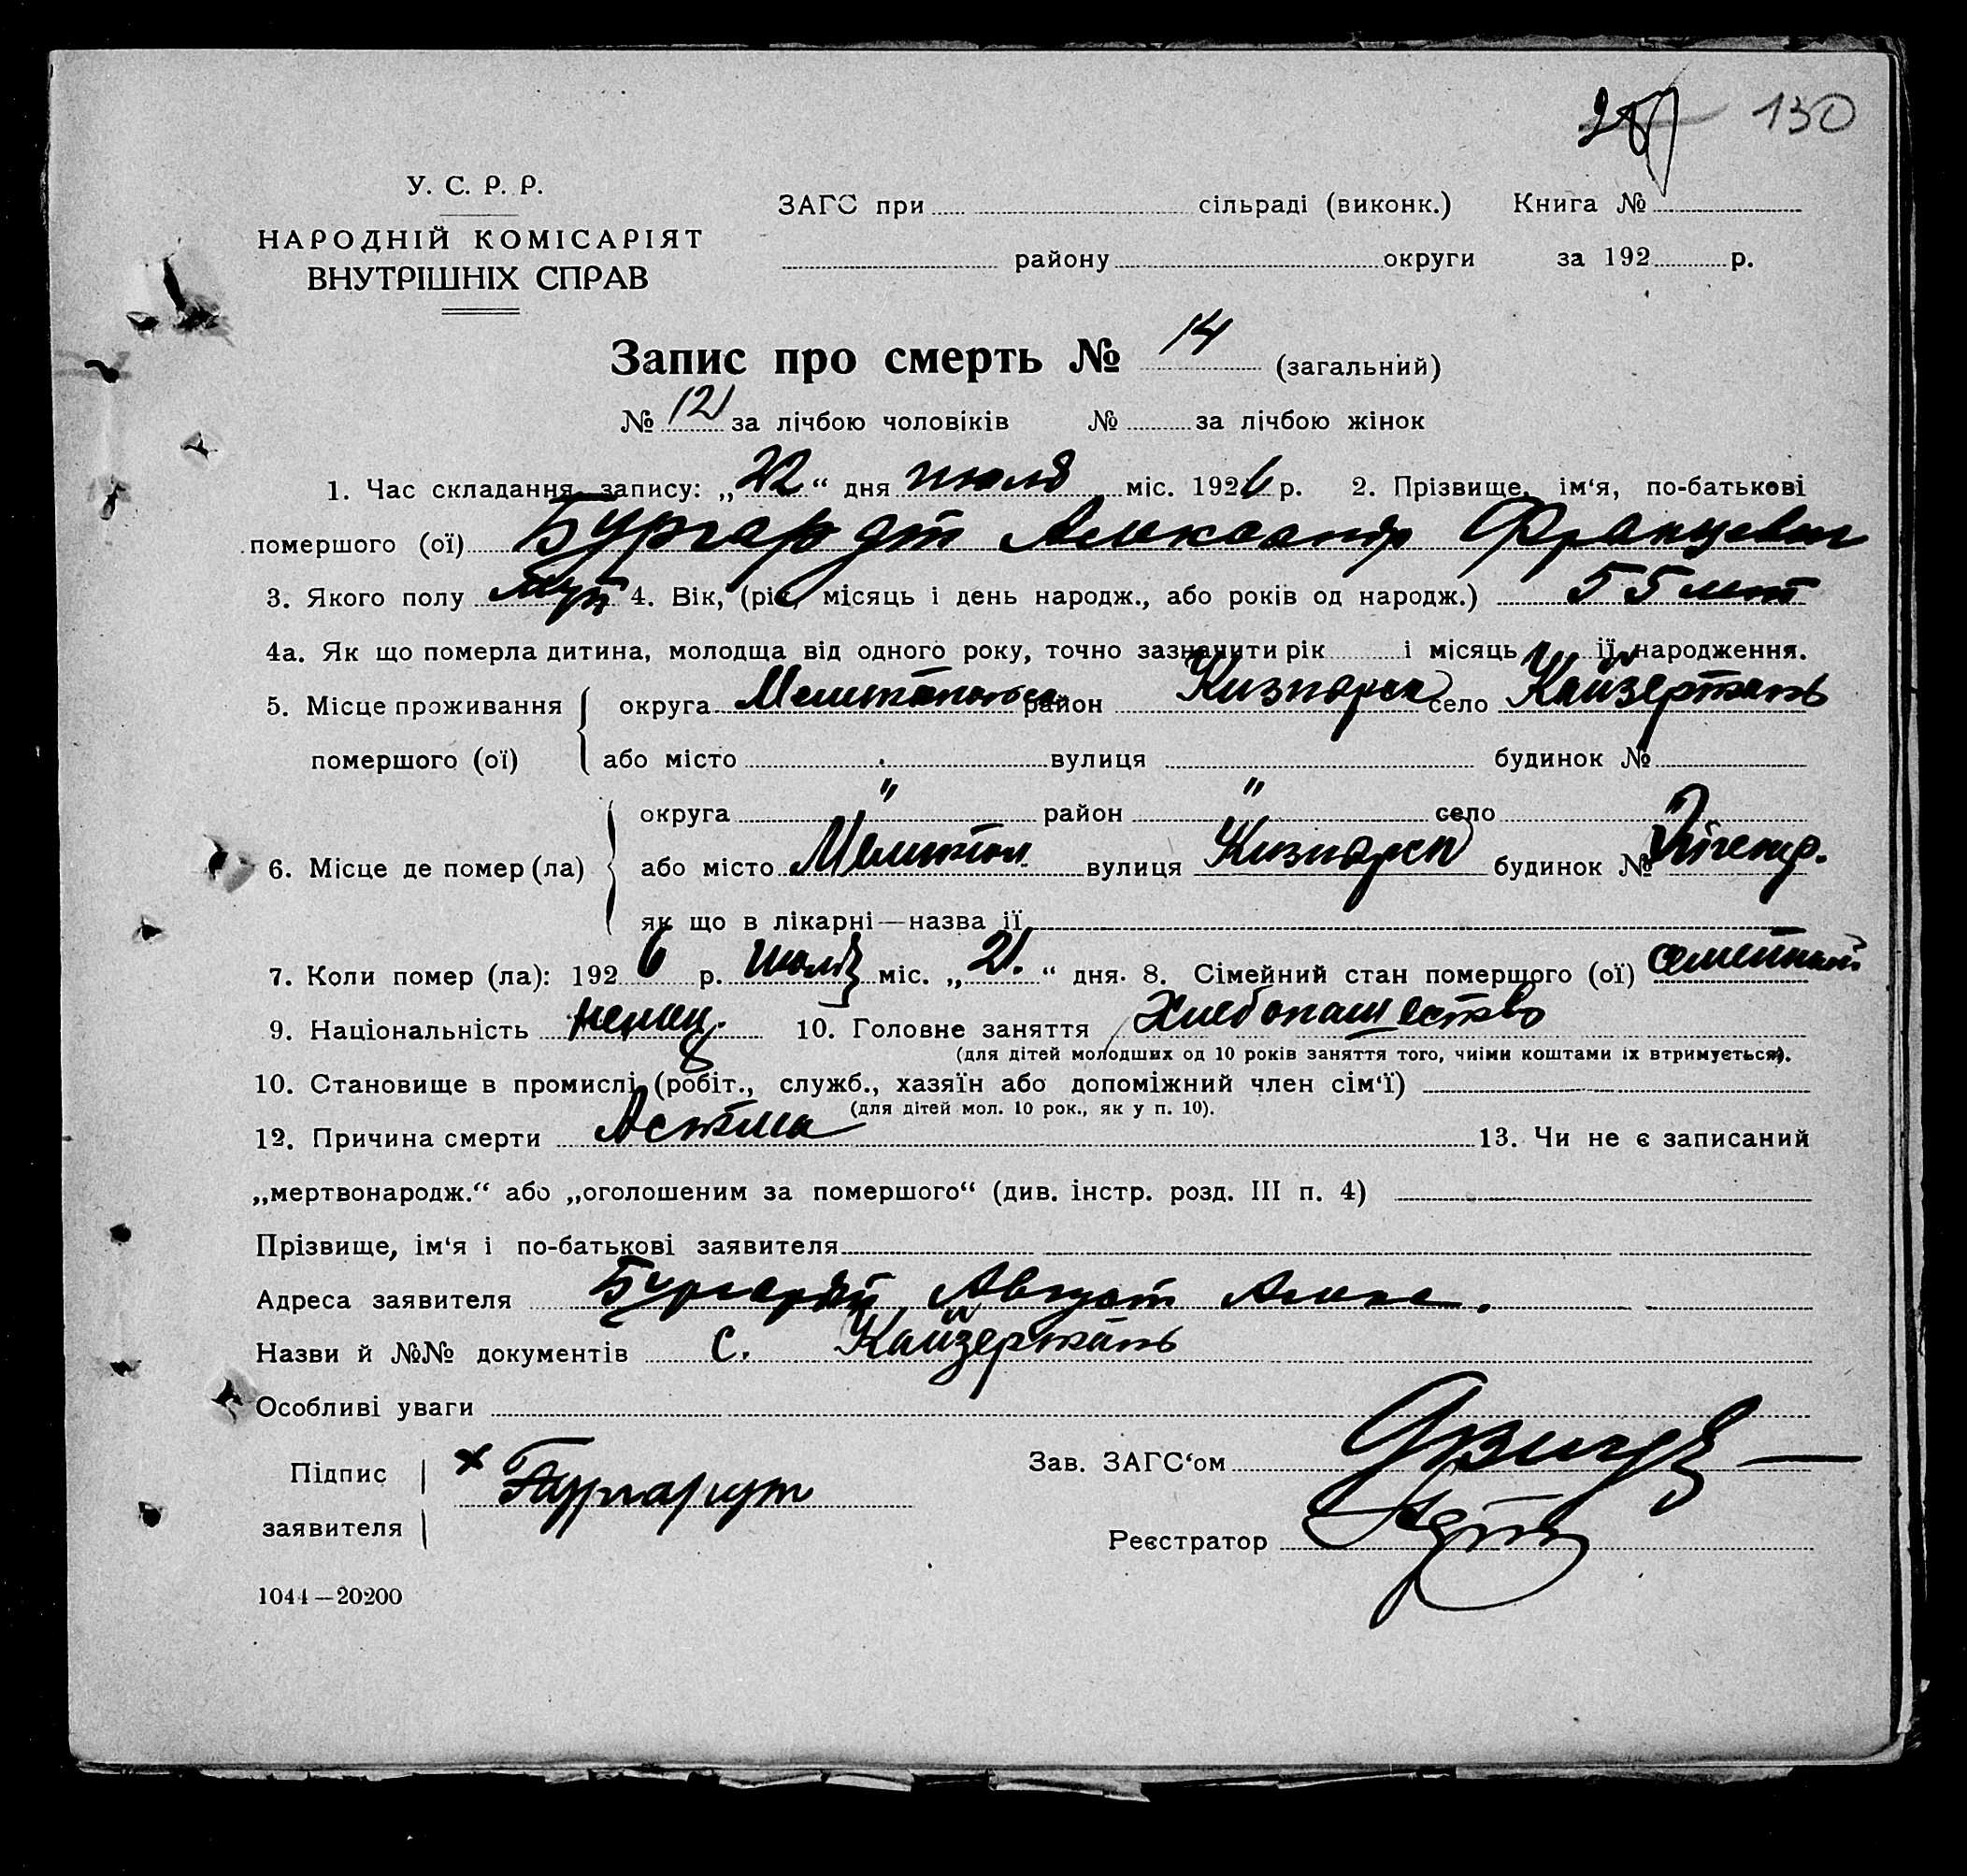 130
У. С. Р. Р.
НАРОДНІЙ КОМІСАРІЯТ
ВНУТРІШНІХ СПРАВ
ЗАГС при сільраді (виконк.) Книга №
району округи за 192 р.
Запис про смерть № 14 (загальний)
№ 12 за лічбою чоловіків № за лічбою жінок
1. Час складання запису: „22“ дня июля міс. 1926 р. 2. Прізвище, ім‘я, по-батькові
помершого (ої) Бургардт Александр Францевич
3. Якого полу муж 4. Вік, (рік, місяць і день народж., або років од народж.) 55 лет
4а. Як що померла дитина, молодща від одного року, точно зазначити рік і місяць її народження.
5. Місце проживання округа район село Кайзерталь
помершого (ої) або місто вулиця будинок №
округа " район " село
6. Місце де помер (ла) або місто вулиця будинок №
як що в лікарні—назва її
7. Коли помер (ла): 1926 р. июля міс. „21.“ дня. 8. Сімейний стан помершого (ої) семейный
9. Національність немец. 10. Головне заняття Хлебопашество
(для дітей молодших од 10 років заняття того, чиїми коштами їх втримується).
10. Становище в промислі (робіт., служб., хазяїн або допоміжний член сім‘ї)
(для дітей мол. 10 рок., як у п. 10).
12. Причина смерти Астма 13. Чи не є записаний
„мертвонародж.“ або „оголошеним за помершого“ (див. інстр. розд. III п. 4)
Прізвище, ім‘я і по-батькові заявителя
Адреса заявителя Бургардт Август Алекс.
Назви й №№ документів с. Кайзерталь
Особливі уваги
Підпис
заявителя
Зав. ЗАГС‘ом
Реєстратор
1044—20200